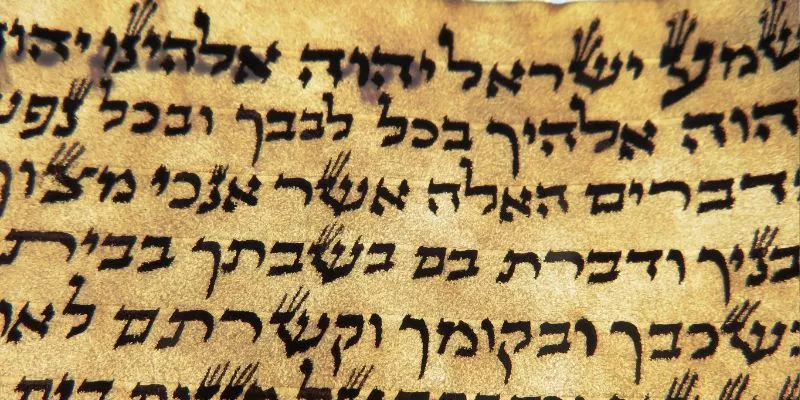 שמע ישראל יהוה אלהינו יהוה
יהוה אלהיך בכל לבבך ובכל נפש
הדברים האלה אשר אנכי מצוך
בניך ודברת בם בשבתך בבית
בשכבך ובקומך וקשרתם לאו